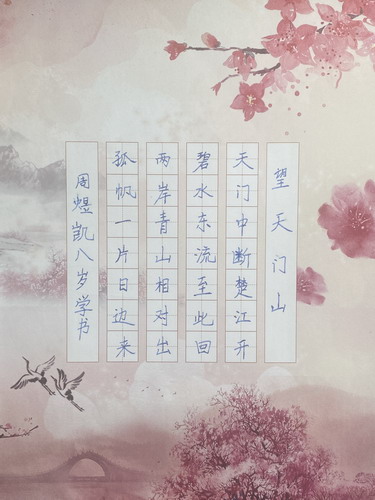 望天门山
天门中断楚江开
碧水东流至此回
两岸青山相对出
孤帆一片日边来
周煜凯八岁学书